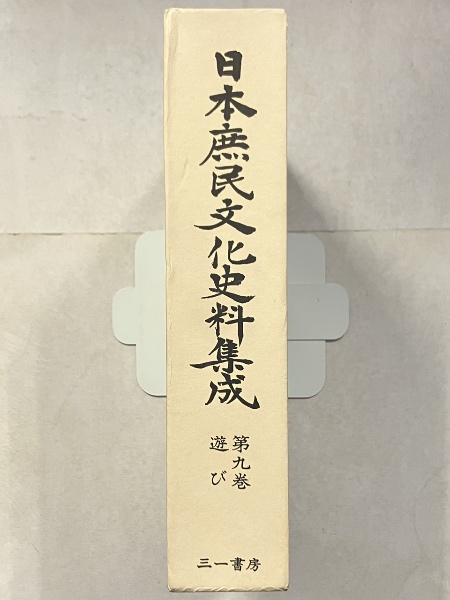 日本庶民文化史料集成
第九巻
遊び
三一書房